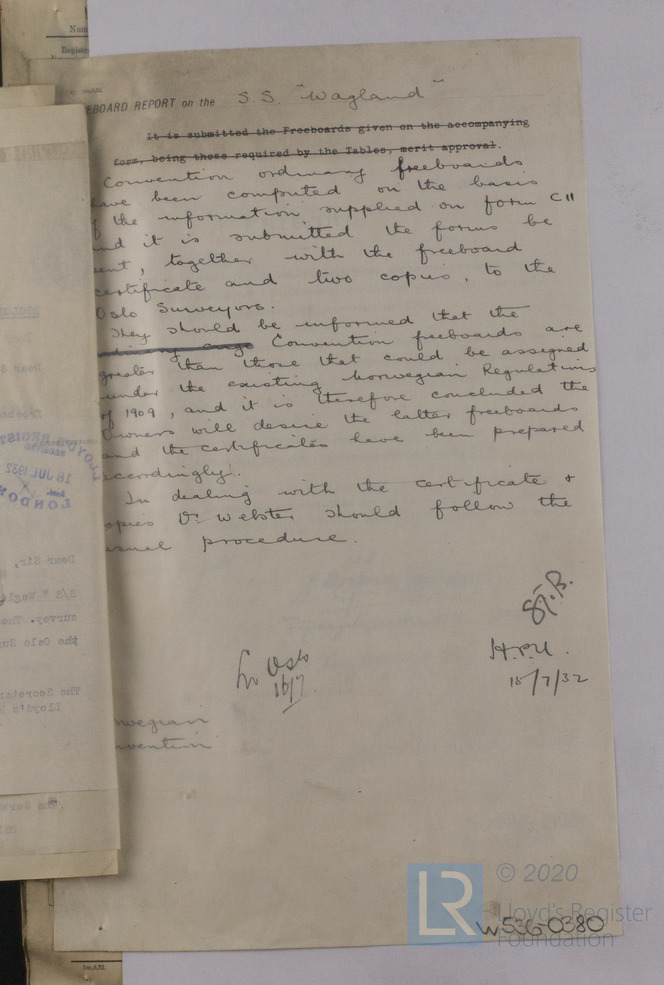 EBOARD REPORT on the S.S. "Wagland"
It is submitted the Freeboards given on the accompanying
form, being those required by the Tables, merit approval.
Convention ordinary freeboards
have been computed on the basis
f the information supplied on form C11
nd it is submitted the forms be
ent, together with the freeboard
certificate and two copies, to the
Oslo Surveyors.
They should be informed that the
Convention freeboards are
greater than those that could be assigned
under the existing Norwegian Regulations
of 1909, and it is therefore concluded the
Owners will desire the latter freeboards
and the certificates have been prepared
accordingly.
In dealing with the certificate &
opies Dr Webster should follow the
usual procedure.
H.P.U.
15/7/32
Oslo
16/7
rwegian
nvention
Num
Registe
REGIST
18 JUL 1932
LONDON
Dear Sir,
S/S "Wagl
survey. The
the Oslo Sur
The Secretar
Lloyd's
LR
© 2020
Lloyd's Register
Foundation
W536-0380